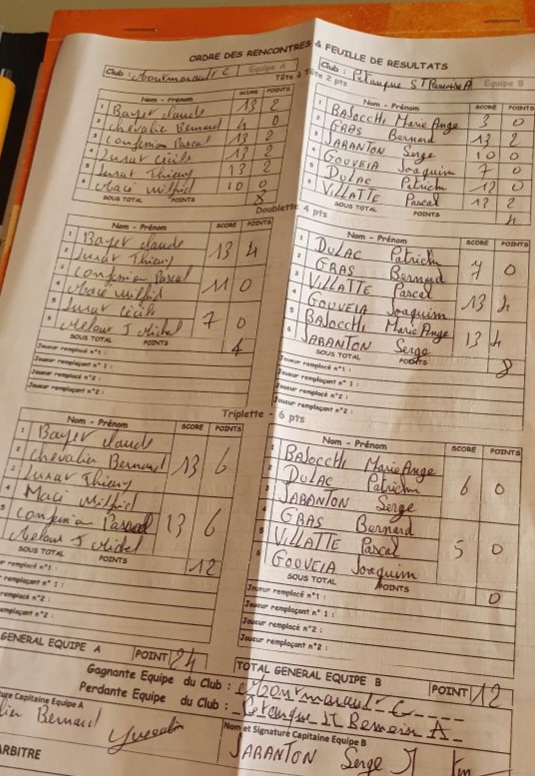 ORDRE DES RENCONTRES & FEUILLE DE RESULTATS
Club : Equipe A
Club : Petanque ST A Equipe B
Tête à Tête 2 pts
Nom - Prénom SCORE POINTS
1 Bayer claude 13 2
2 chevalier Bernard 4 0
3 Confesion Pascal 13 2
4 Lurat Cécile 13 2
5 Lurat Thierry 13 2
6 Macé Wilfrid 10 0
SOUS TOTAL POINTS 8
Nom - Prénom SCORE POINTS
1 BAJOCCHI Marie Ange 3 0
2 GRAS Bernard 13 2
3 JABANTON Serge 10 0
4 GOUVEIA Joaquim 7 0
5 DULAC Patrick 12 0
6 VILLATTE Pascal 13 2
SOUS TOTAL POINTS 4
Doublette 4 pts
Nom - Prénom SCORE POINTS
1 Bayer claude 13 4
2 Lurat Thierry
3 Confesion Pascal 11 0
4 Macé Wilfrid
5 Lurat Cécile 7 0
6 J Michel
SOUS TOTAL POINTS 4
Joueur remplacé n°1 :
Joueur remplaçant n°1 :
Joueur remplacé n°2 :
Joueur remplaçant n°2 :
Nom - Prénom SCORE POINTS
1 DULAC Patrick 7 0
2 GRAS Bernard
3 VILLATTE Pascal 13 4
4 GOUVEIA Joaquim
5 BAJOCCHI Marie Ange 13 4
6 JABANTON Serge
SOUS TOTAL POINTS 8
Joueur remplacé n°1 :
Joueur remplaçant n°1 :
Joueur remplacé n°2 :
Joueur remplaçant n°2 :
Triplette - 6 pts
Nom - Prénom SCORE POINTS
1 Bayer claude 13 6
2 Chevalier Bernard
3 Lurat Thierry
4 Macé Wilfrid 13 6
5 Confesion Pascal
J Michel
SOUS TOTAL POINTS 12
remplacé n°1 :
remplaçant n°1 :
remplacé n°2 :
remplaçant n°2 :
Nom - Prénom SCORE POINTS
1 BAJOCCHI Marie Ange 6 0
2 DULAC Patrick
3 JABANTON Serge
4 GRAS Bernard 5 0
5 VILLATTE Pascal
6 GOUVEIA Joaquim
SOUS TOTAL POINTS 0
Joueur remplacé n°1 :
Joueur remplaçant n°1 :
Joueur remplacé n°2 :
Joueur remplaçant n°2 :
GENERAL EQUIPE A POINT 24
TOTAL GENERAL EQUIPE B POINT 12
Gagnante Equipe du Club :
Perdante Equipe du Club : Petanque St A
Signature Capitaine Equipe A
Bernard
Nom et Signature Capitaine Equipe B
JABANTON Serge
ARBITRE